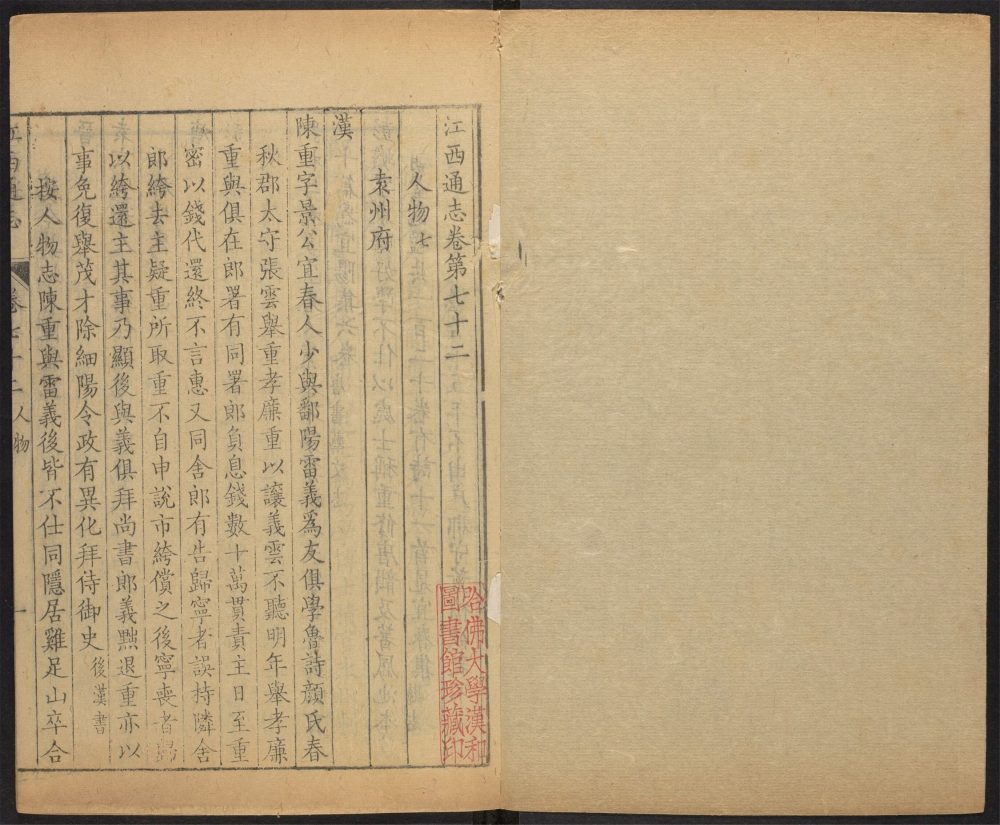 江西通志卷第七十二
人物七
袁州府
漢
陳重字景公宜春人少與鄱陽雷義爲友俱學魯詩顔氏春
秋郡太守張雲舉重孝廉重以讓義雲不聽明年舉孝廉
重與俱在郎署有同署郎負息錢數十萬貫責主日至重
密以錢代還終不言惠又同舍郎有告歸寧者誤持隣舍
郎絝去主疑重所取重不自申說市絝償之後寧喪者歸
以絝還主其事乃顯後與義俱拜尚書郎義黜退重亦以
事免復舉茂才除細陽令政有異化拜待御史後漢書
按人物志陳重與雷義後皆不仕同隱居雞足山卒合
江西通志
卷七十二人物
一
哈佛大學漢和
圖書館珍藏印